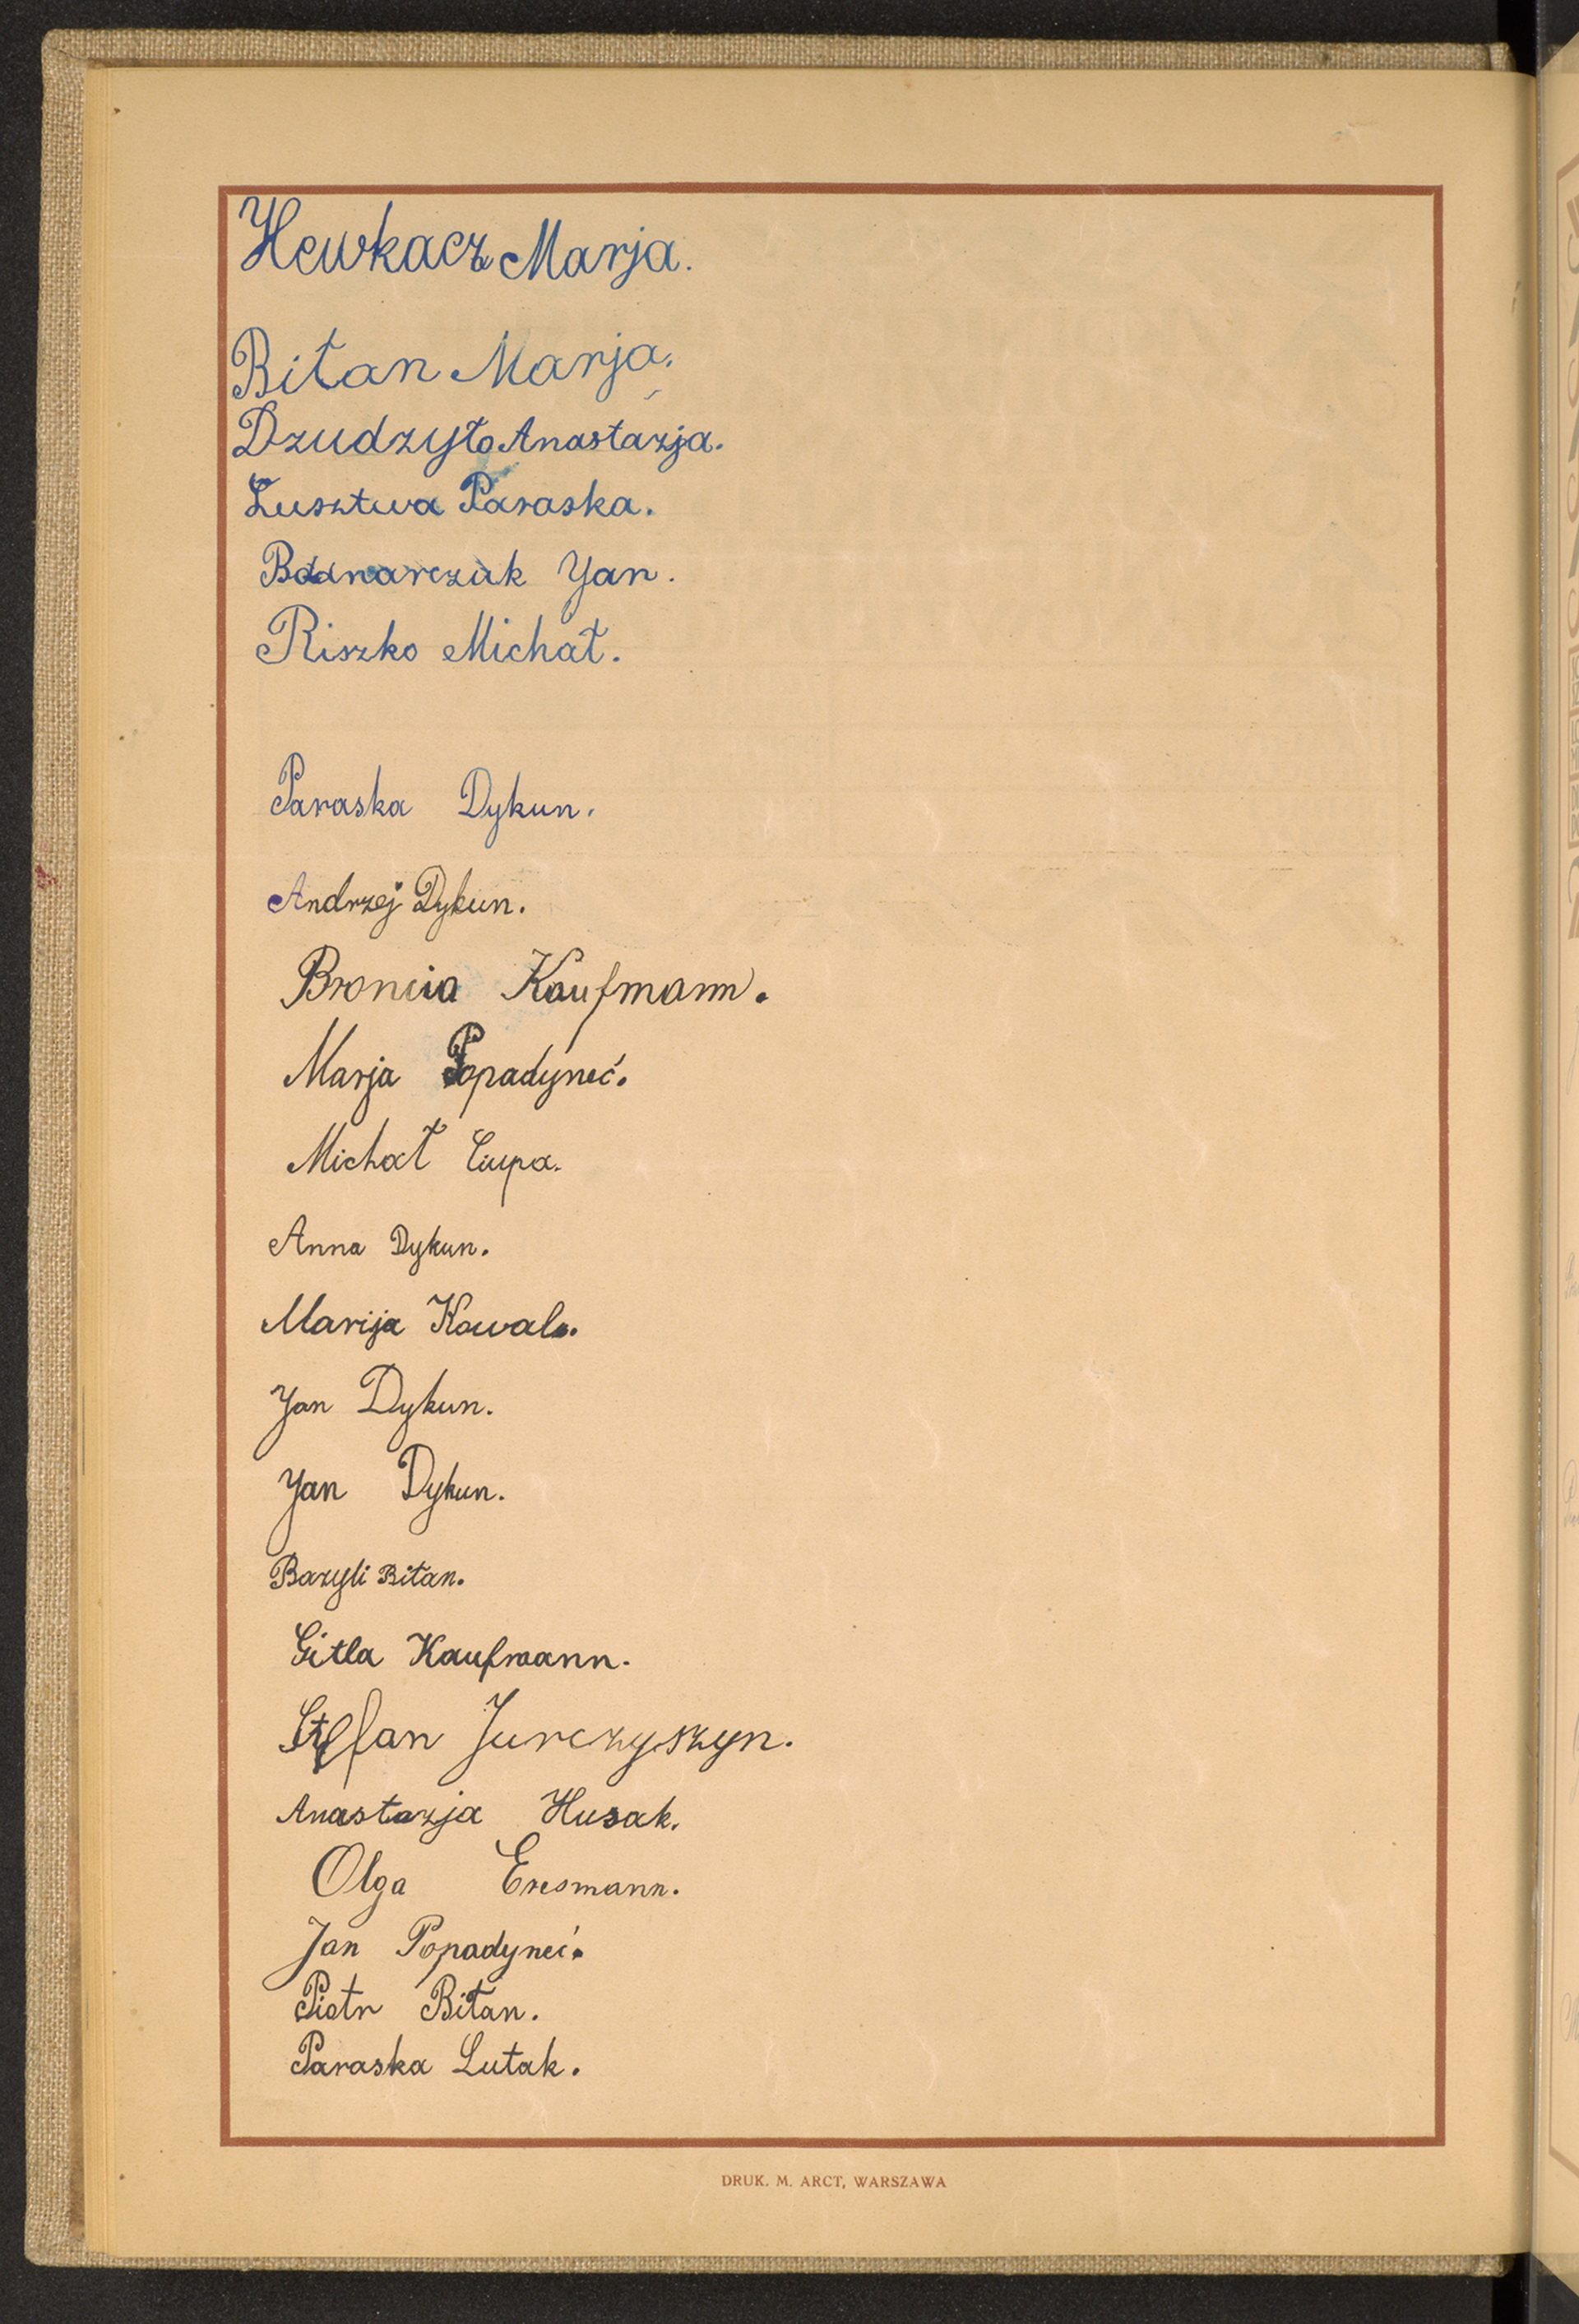 Hewkacz Marja.
Bitan Marja.
Dzudzyło Anastazja.
Lusztwa Paraska.
Bodnarczuk Jan.
Riszko Michał.
Paraska Dykun.
Andrzej Dykun.
Broncia Kaufmann.
Marja Popadyneć.
Michał Ciupa.
Anna Dykun.
Marija Kowal.
Jan Dykun.
Jan Dykun.
Bazyli Bitan.
Gitla Kaufmann.
Stefan Jurczyszyn.
Anastazja Husak.
Olga
Jan Popadyneć.
Piotr Bitan.
Paraska Lutak.
DRUK. M. ARCT, WARSZAWA